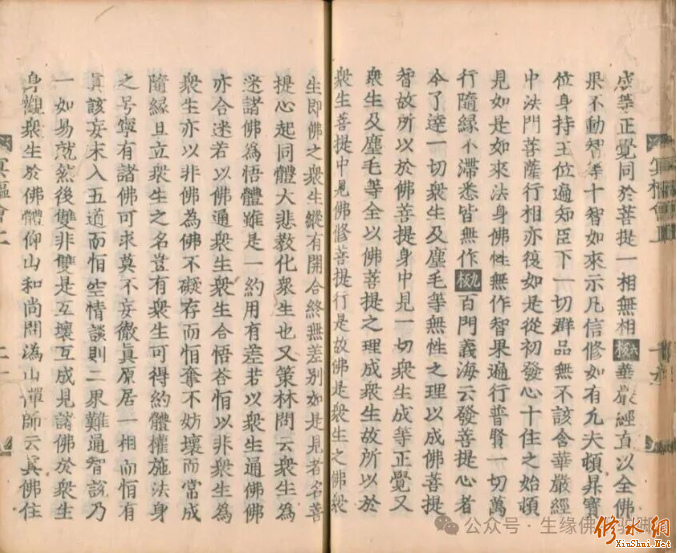 成等正覺同於菩提一相無相 華嚴經直以全佛
果不動智等十智如來示凡信修如有凡夫頓昇寶
位身持王位遍知臣下一切群品無不該含華嚴經
中法門菩薩行相亦復如是從初發心十住之始頓
見如是如來法身佛性無作智果遍行普賢一切萬
行隨緣不滯悉皆無作 百門義海云發菩提心者
今了達一切衆生及塵毛等無性之理以成佛菩提
智故所以於佛菩提身中見一切衆生成等正覺又
衆生及塵毛等全以佛菩提之理成衆生故所以於
衆生菩提中見佛修菩提行是故佛是衆生之佛衆
生即佛之衆生縱有開合終無差別如是見者名菩
提心起同體大悲教化衆生也又策林問云衆生為
迷諸佛為悟體雖是一約用有差若以衆生通佛佛
亦合迷若以佛通衆生衆生合悟荅恒以非衆生為
衆生亦以非佛為佛不礙存而恒奪不妨壞而常成
隨緣且立衆生之名豈有衆生可得約體權施法身
之号寧有諸佛可求莫不妄徹真原居一相而恒有
真該妄末入五道而恒空情談則二界難通智說乃
一如易就然後雙非雙是互壞互成見諸佛於衆生
身觀衆生於佛體仰山和尚問溈山禪師云真佛住
公众号·生缘佛
修水网
XiuShui.Net